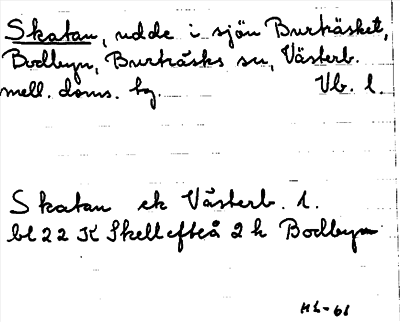 Skatan, udde i sjön Burträsket,
Bodbyn, Burträsks sn, Västerb.
mell. doms. hg. Vb. l.
Skatan ek Västerb. l.
bl 22 K Skellefteå 2 h Bodbyn
HL-61